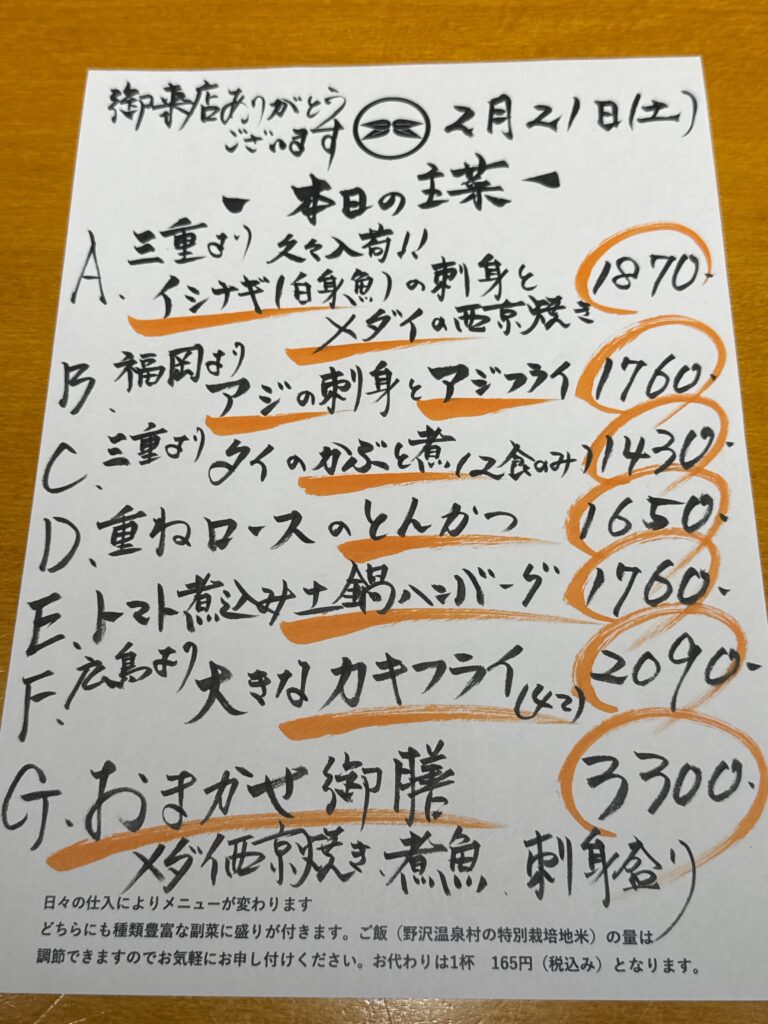 御来店ありがとう
ございます
2月21日(土)
- 本日の主菜 -
A. 三重より 久々入荷!!
イシナギ(白身魚)の刺身と
メダイの西京焼き 1870.
B. 福岡より
アジの刺身とアジフライ 1760.
C. 三重より タイのかぶと煮(2食のみ) 1430.
D. 重ねロースのとんかつ 1650.
E. トマト煮込み土鍋ハンバーグ 1760.
F. 広島より 大きなカキフライ(4コ) 2090.
G. おまかせ御膳 3300.
メダイ西京焼き、煮魚、刺身盛り
日々の仕入によりメニューが変わります
どちらにも種類豊富な副菜に盛りが付きます。ご飯(野沢温泉村の特別栽培地米)の量は
調節できますのでお気軽にお申し付けください。お代わりは1杯 165円(税込み)となります。